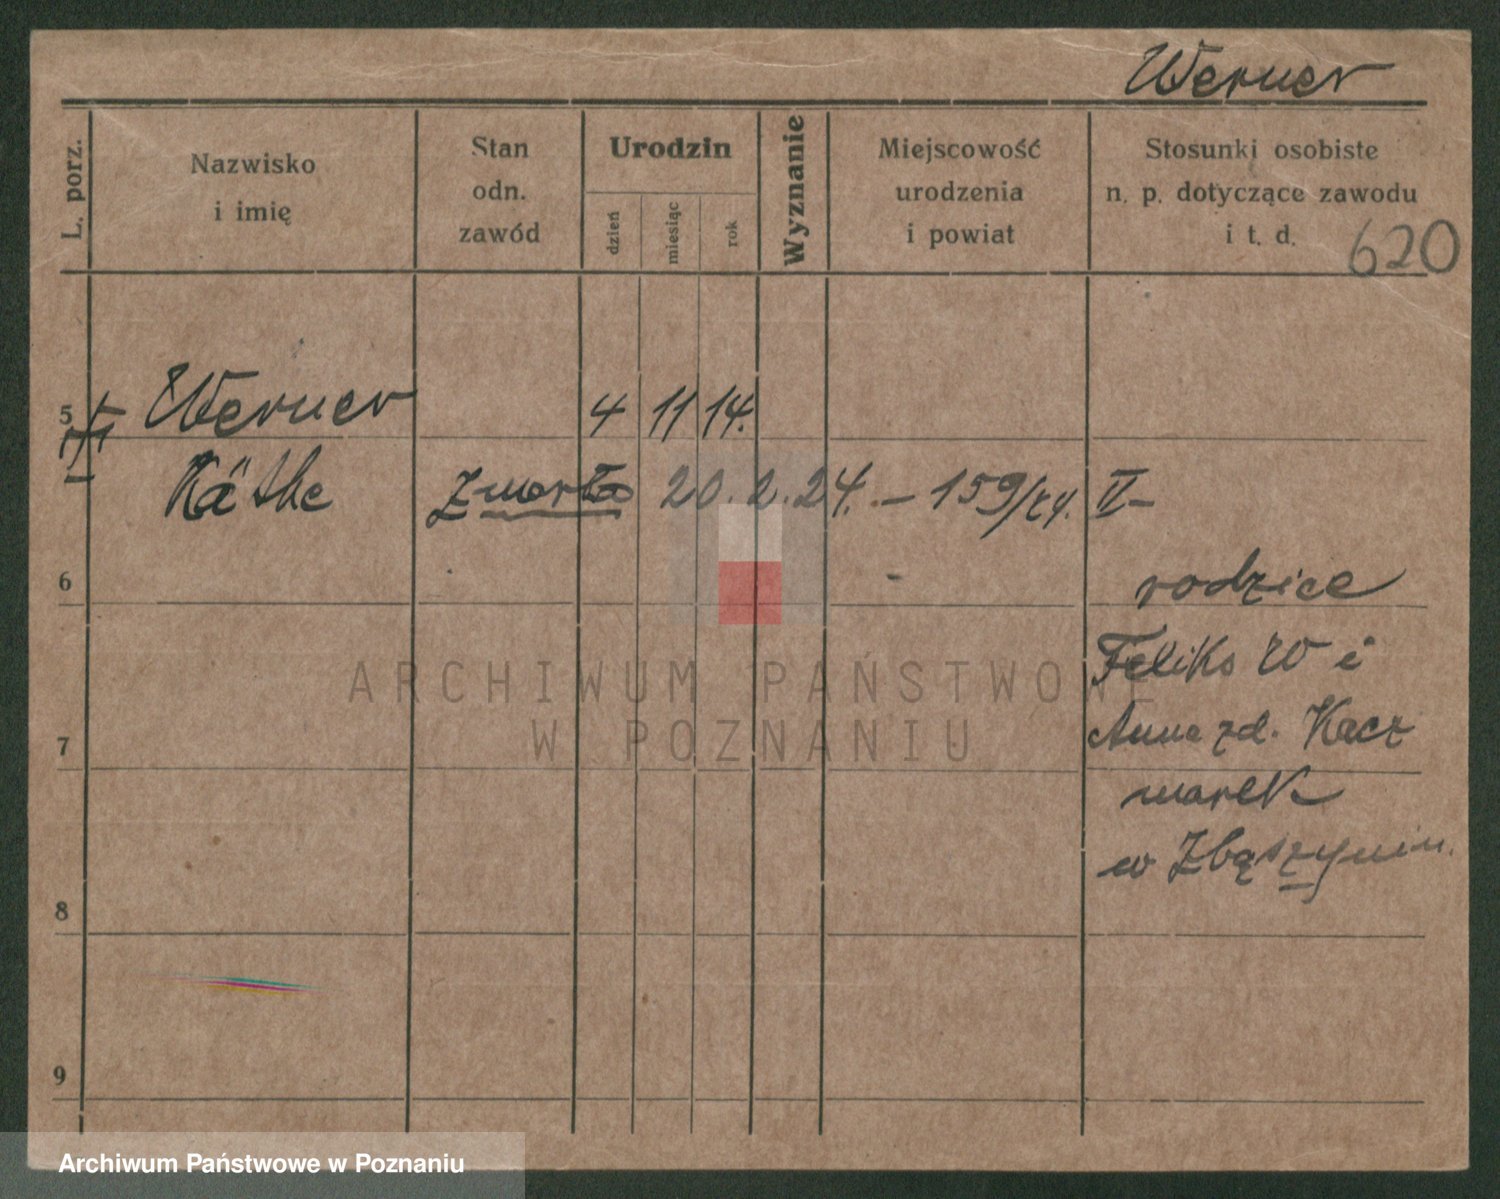 Werner
L. porz.
Nazwisko
i imię
Stan
odn.
zawód
Urodzin
dzień
miesiąc
rok
Wyznanie
Miejscowość
urodzenia
i powiat
Stosunki osobiste
n. p. dotyczące zawodu
i t. d.
620
5 Werner 4 11 14.
Käthe zmarła 20. 2. 24. – 159/24. V–
6 rodzice
Feliks W i
Anna zd. Kacz
7
marek
w Zbąszyniu.
8
9
ARCHIWUM PAŃSTWOWE
W POZNANIU
Archiwum Państwowe w Poznaniu